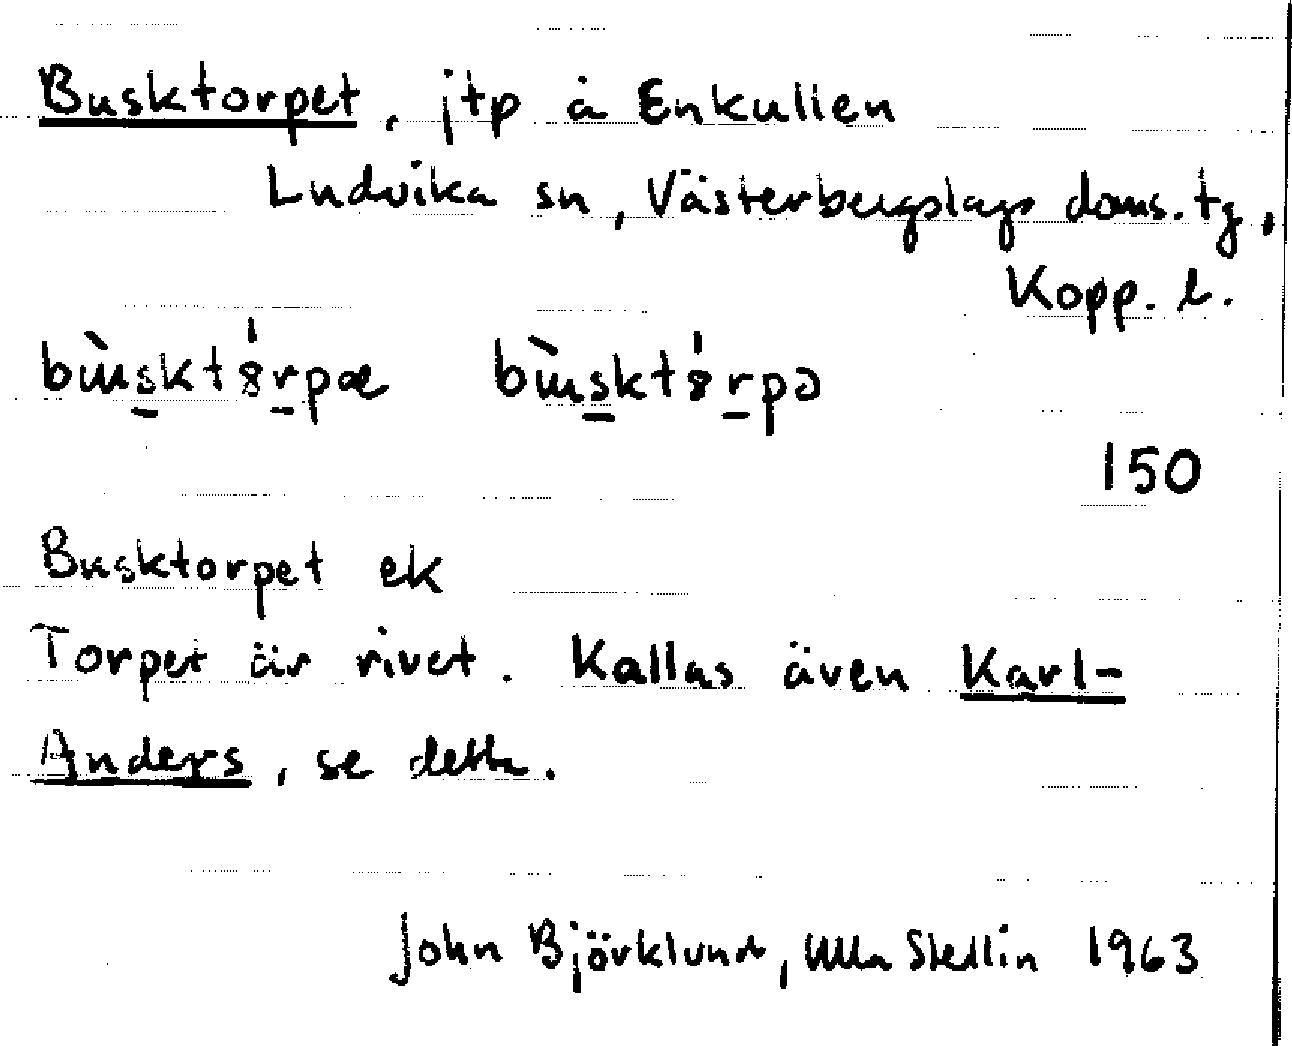 Busktorpet, jtp å Enkullen
Ludvika sn, Västerbergslags doms. tg,
Kopp. l.
bùsktȣ́rpæ bùsktȣ́rpə
150
Busktorpet ek
Torpet är rivet. Kallas även Karl-
Anders, se detta.
John Björklund, Ulla Stedlin 1963